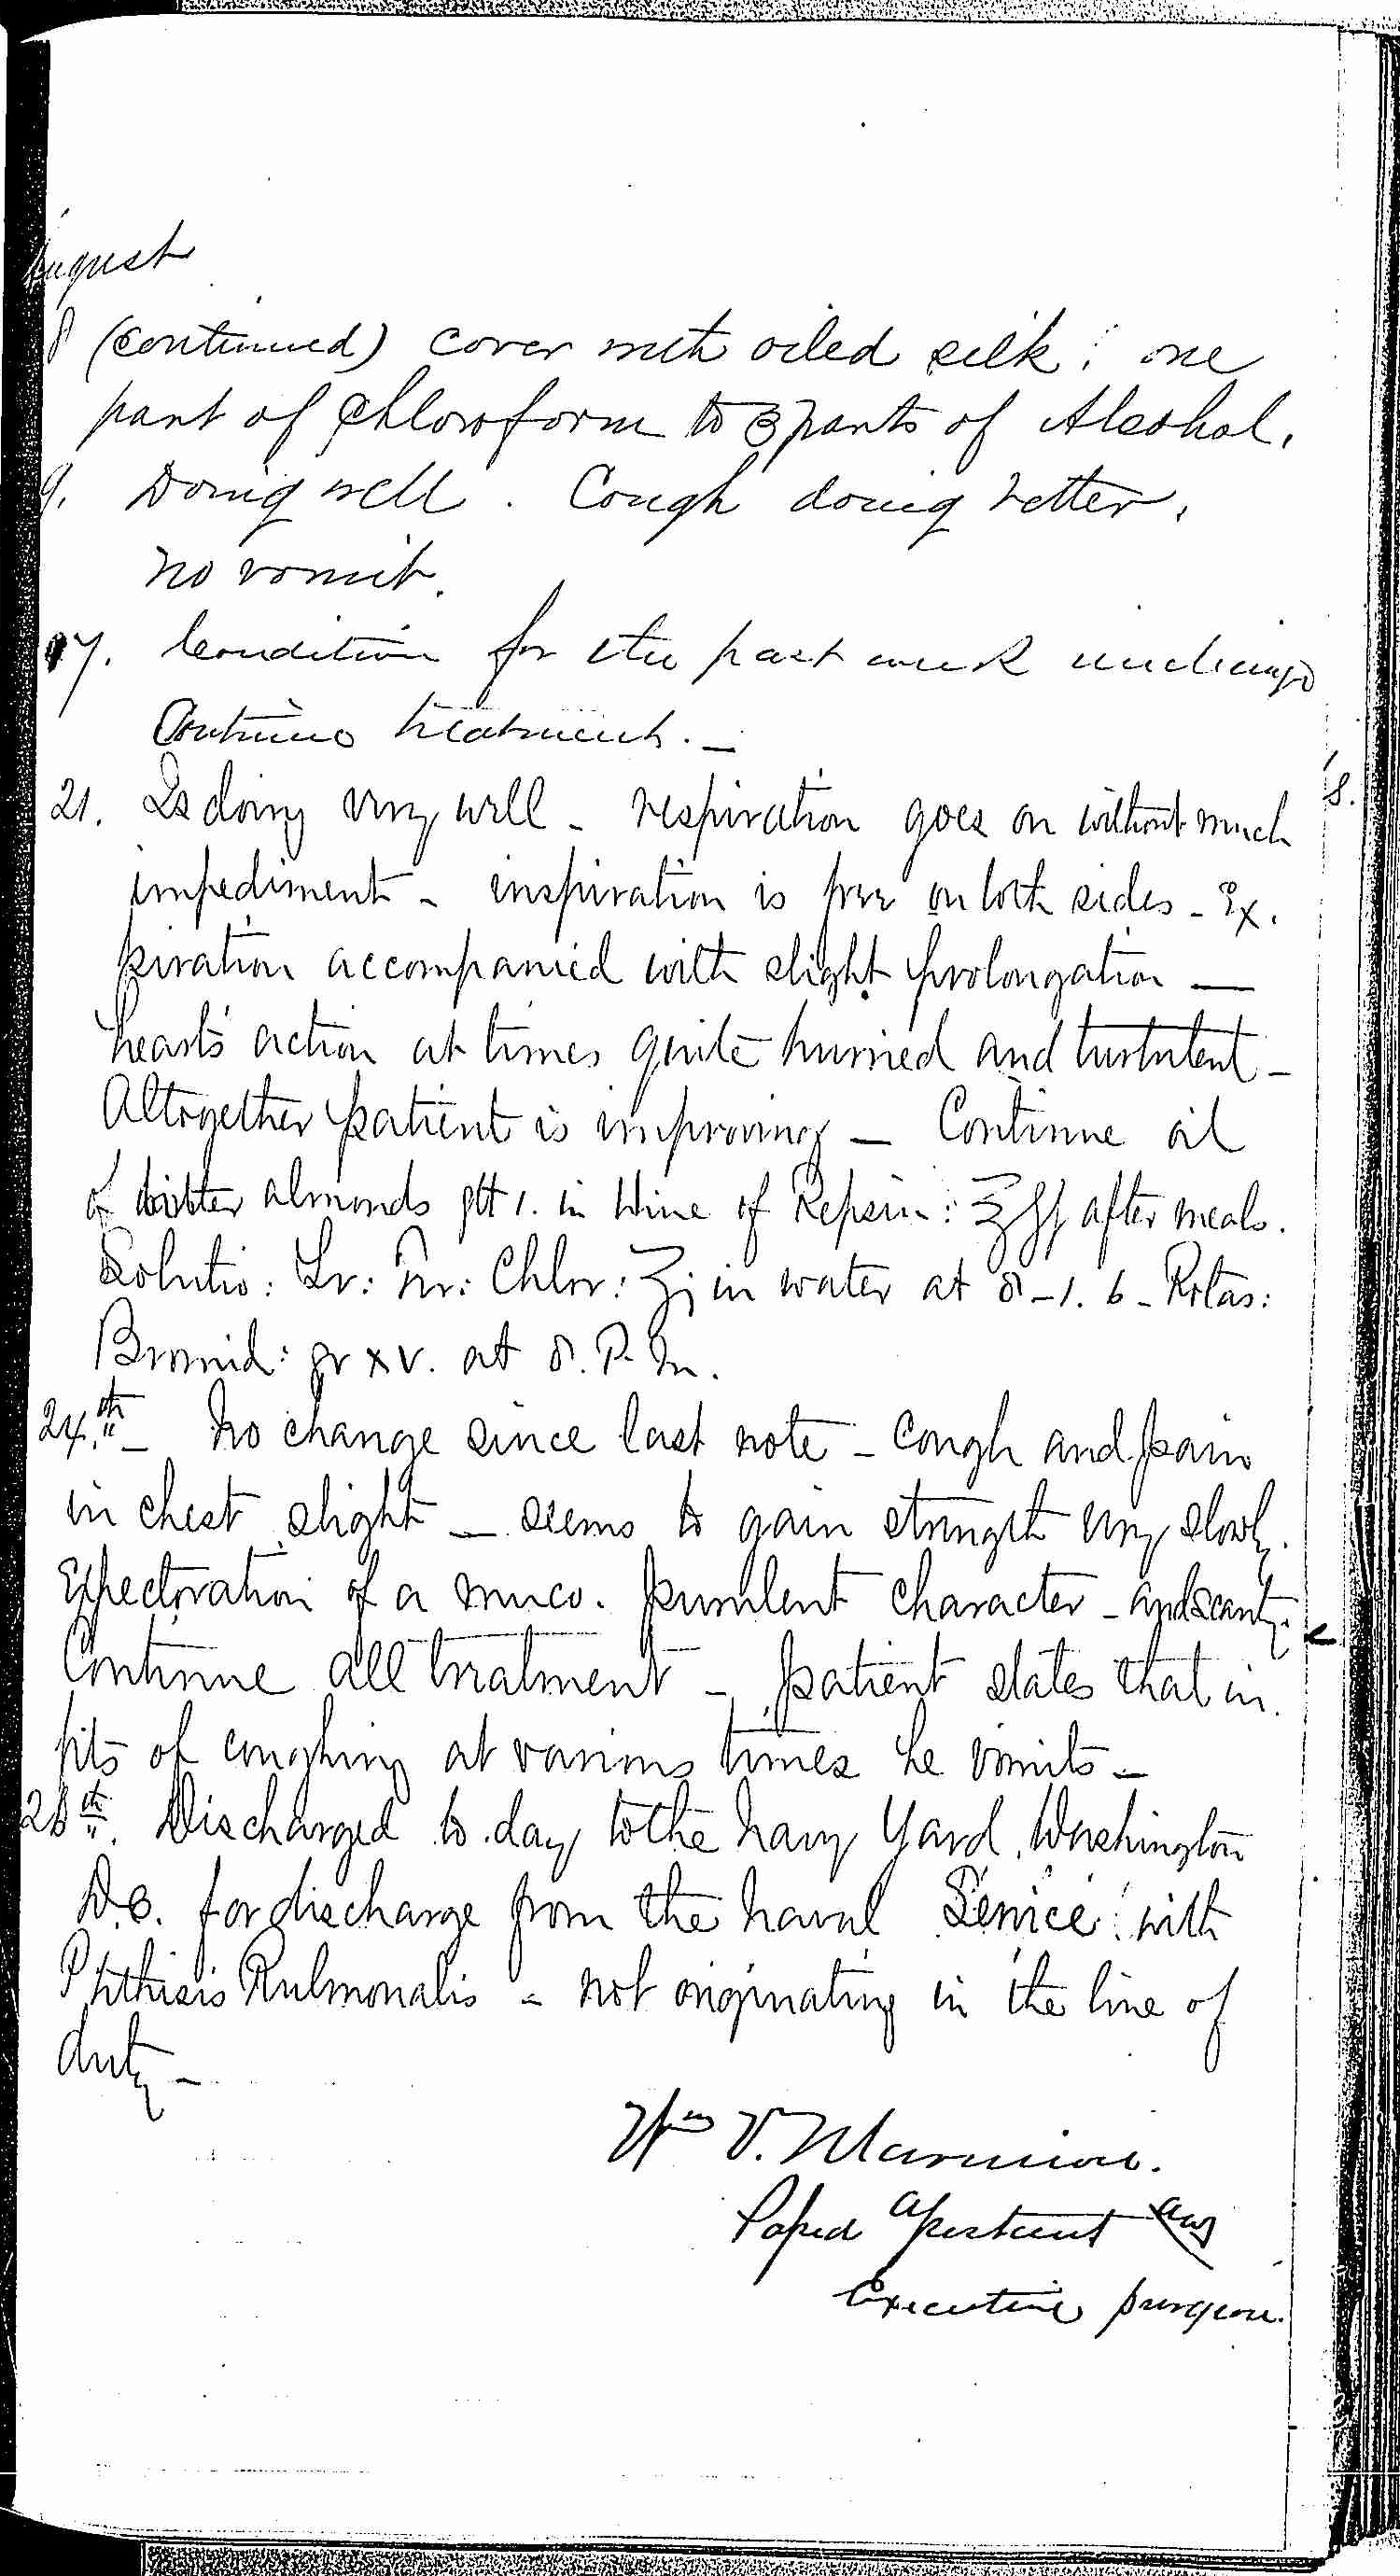 August
8 (continued) cover with oiled silk; one
part of Chloroform to 3 parts of Alcohol.
9. Doing well. Cough doing better.
no vomit.
17. Condition for the past week unchangd
Continue treatment. —
21. Is doing very well - respiration goes on without much
impediment - inspiration is free on both sides - Ex.
piration accompanied with slight prolongation —
heart's action at times quite hurried and turbulent -
Altogether patient is improving — Continue oil
of bitter almonds gtt 1. in Wine of Pepsin: ℥ss after meals.
Solutio: Chlor: in water at 8-1. 6 - Potas:
Bromid: gr xv. at 8. P. M.
24.th - No change since last note - Cough and pain
in chest slight — seems to gain strength very slowly.
Expectoration of a muco. purulent character - and scanty.
Continue all treatment - patient states that in
fits of coughing at various times he vomits -
28th. Discharged to. day to the Navy Yard, Washington
D.C. for discharge from the Naval Service: with
Phthisis Pulmonalis - not originating in the line of
duty -
Wm V. Marmion.
Passed Assistant and
Executive Surgeon.